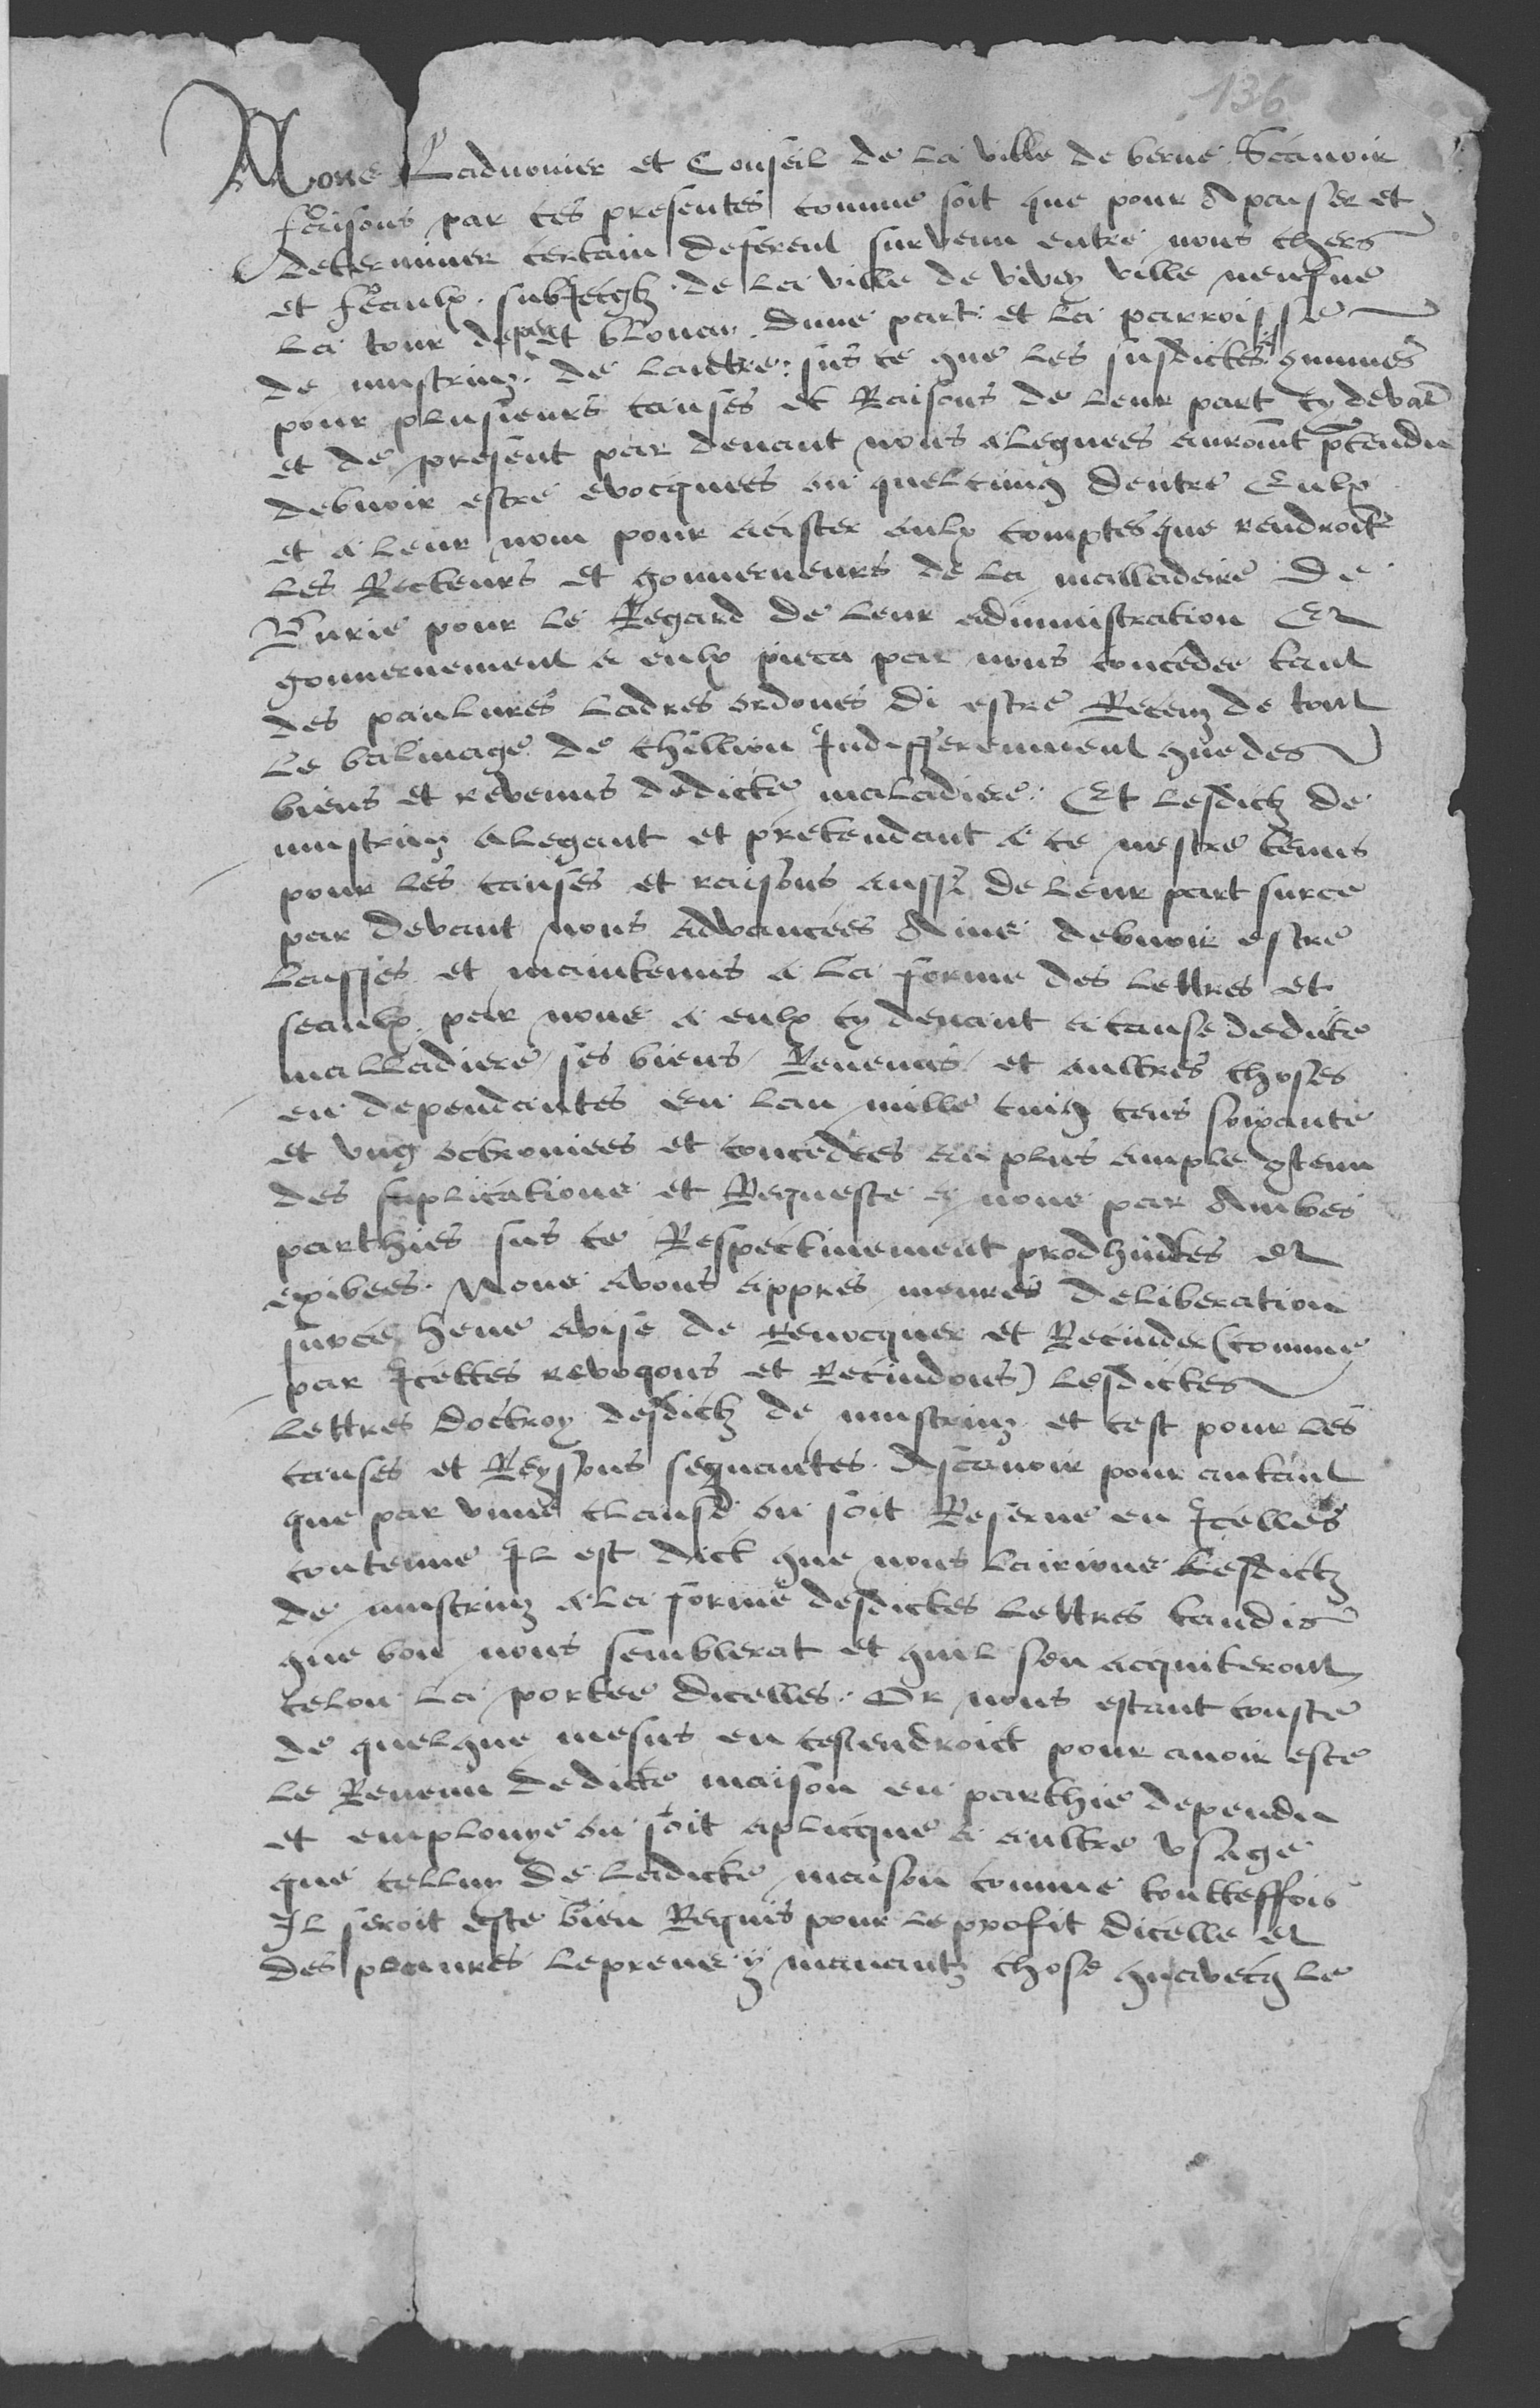 136
Nous Ladvouier et Conseil de la ville de berne Scavoir
faisons par ces presentes comme soit que pour Apauser et
determiner certain deferent survenu entre nous chers
et feaulx subjectz de la ville de vivey ville neufve
la tour de pet blonay dune part et la parroisse
de mustruz de lautre: sus ce que les susdictes gmunes
pour plusieurs causes et Raisons de leur part cy devat
et de present par devant nous aleguees auroint ptendu
debvoir estre evocquees ou quelcung dentre eulx
et a leur nom pour acister aulx comptes que rendroit
les Recteurs et gouverneurs de la malladeire de
Burie pour le Regard de leur administration et
gouvernement a eulx pieca par nous concedee tant
des paulvres ladres ordones di estre Receuz de tout
le balivage de chillion Indifferemment que des
biens et revenus dedicte maladiere. Et lesdictz de
mustruz alegant et pretendant a ce nestre tenus
pour les causes et raisons aussi de leur part surce
par devant nous advancees Aine debvoir estre
laisses et maintenus a la forme des lettres et
seaulx par nous a eulx cy devant a cause dedicte
malladiere ses biens Revenus et aultres choses
en dependantes en lan mille cinq cens soixante
et ung octroiees et concedees au plus ample gtenu
des suplications et Requeste a nous par Ambes
parthies sus ce Respectivement prodhuictes et
exibees. Nous avons appres meures deliberation
surce heue avise de Revocquer et Recinder (comme
par Icelles revoqons et Recindons) lesdictes
lettres doctroy desdictz de mustruz et cest pour les
causes et Reysons sequantes. Ascavoir pour autant
que par une clause ou soit Reserve en Icelles
contenue Il est dict que nous lairions lesdictz
de mustruz a la forme desdictes lettres tandis
que bon nous semblerat et quil sen acquiteront
celon la portee dicelles. Or nous estant conste
de quelque mesus en cest endroict pour avoir este
le Revenu dedicte maison en parthie dependu
et emplouye ou soit aplicque a aultre usage
que celluy de ladicte maison comme touttesffois
Il seroit este bien Requis pour le profit dicelle et
des plauvres lepreux y manantz chose quavecq le